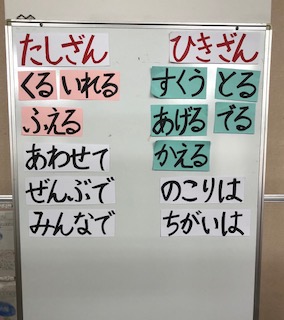 たしざん
くる いれる
ふえる
あわせて
ぜんぶで
みんなで
ひきざん
すくう とる
あげる でる
かえる
のこりは
ちがいは